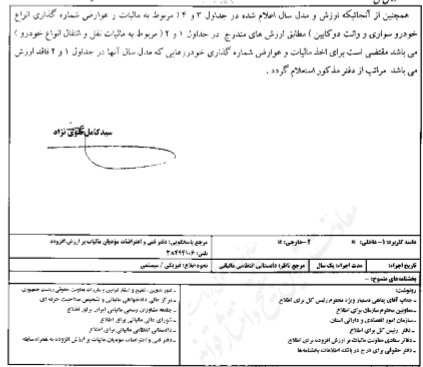 همچنین از آنجائیکه ارزش و مدل سال اعلام شده در جداول ۳ و ۴ ( مربوط به مالیات و عوارض شماره گذاری انواع
خودرو سواری و وانت دوکابین ) مطابق ارزش های مندرج در جداول ۱ و ۲ ( مربوط به مالیات نقل و انتقال انواع خودرو )
می باشد مقتضی است برای اخذ مالیات و عوارض شماره گذاری خودروهایی که مدل سال آنها در جداول ۱ و ۲ فاقد ارزش
می باشد مراتب از دفتر مذکور استعلام گردد .
سید کامل تقوی نژاد
دامنه کاربرد: ۱- داخلی: ۲- خارجی:
مرجع پاسخگویی: دفتر فنی و اعتراضات مؤدیان مالیات بر ارزش افزوده
تلفن:
تاریخ اجراء:
مدت اجراء: یک سال
مرجع ناظر: دادستانی انتظامی مالیاتی
نحوه ابلاغ: فیزیکی / سیستمی
بخشنامه های منسوخ: -
رونوشت:
- جناب آقای پناهی دستیار ویژه محترم رئیس کل برای اطلاع
- معاونین محترم سازمان برای اطلاع
- سازمان امور اقتصادی و دارائی استان
- دفتر رئیس کل برای اطلاع
- دفاتر ستادی معاونت مالیات بر ارزش افزوده برای اطلاع
- دفتر حقوقی برای درج در بانک اطلاعات بخشنامه ها
- مرکز عالی دادخواهی مالیاتی و تشخیص صلاحیت حرفه ای
- جامعه مشاوران رسمی مالیاتی ایران برای اطلاع
- شورای عالی مالیاتی برای اطلاع
- دادستانی انتظامی مالیاتی برای اطلاع
- دفتر فنی و اعتراضات مؤدیان مالیات بر ارزش افزوده به همراه سابقه